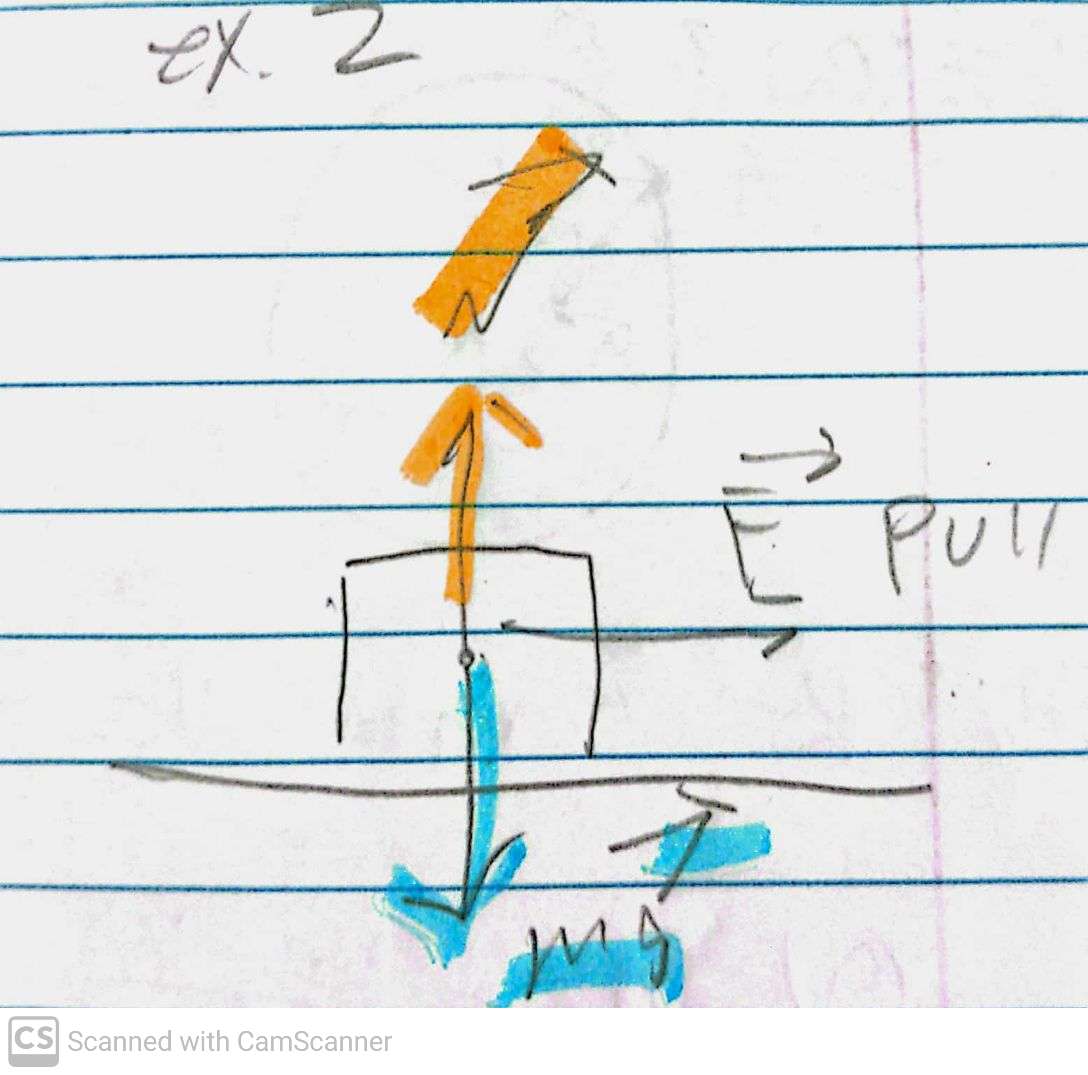 ex. 2
N
F Pull
mg
CS Scanned with CamScanner